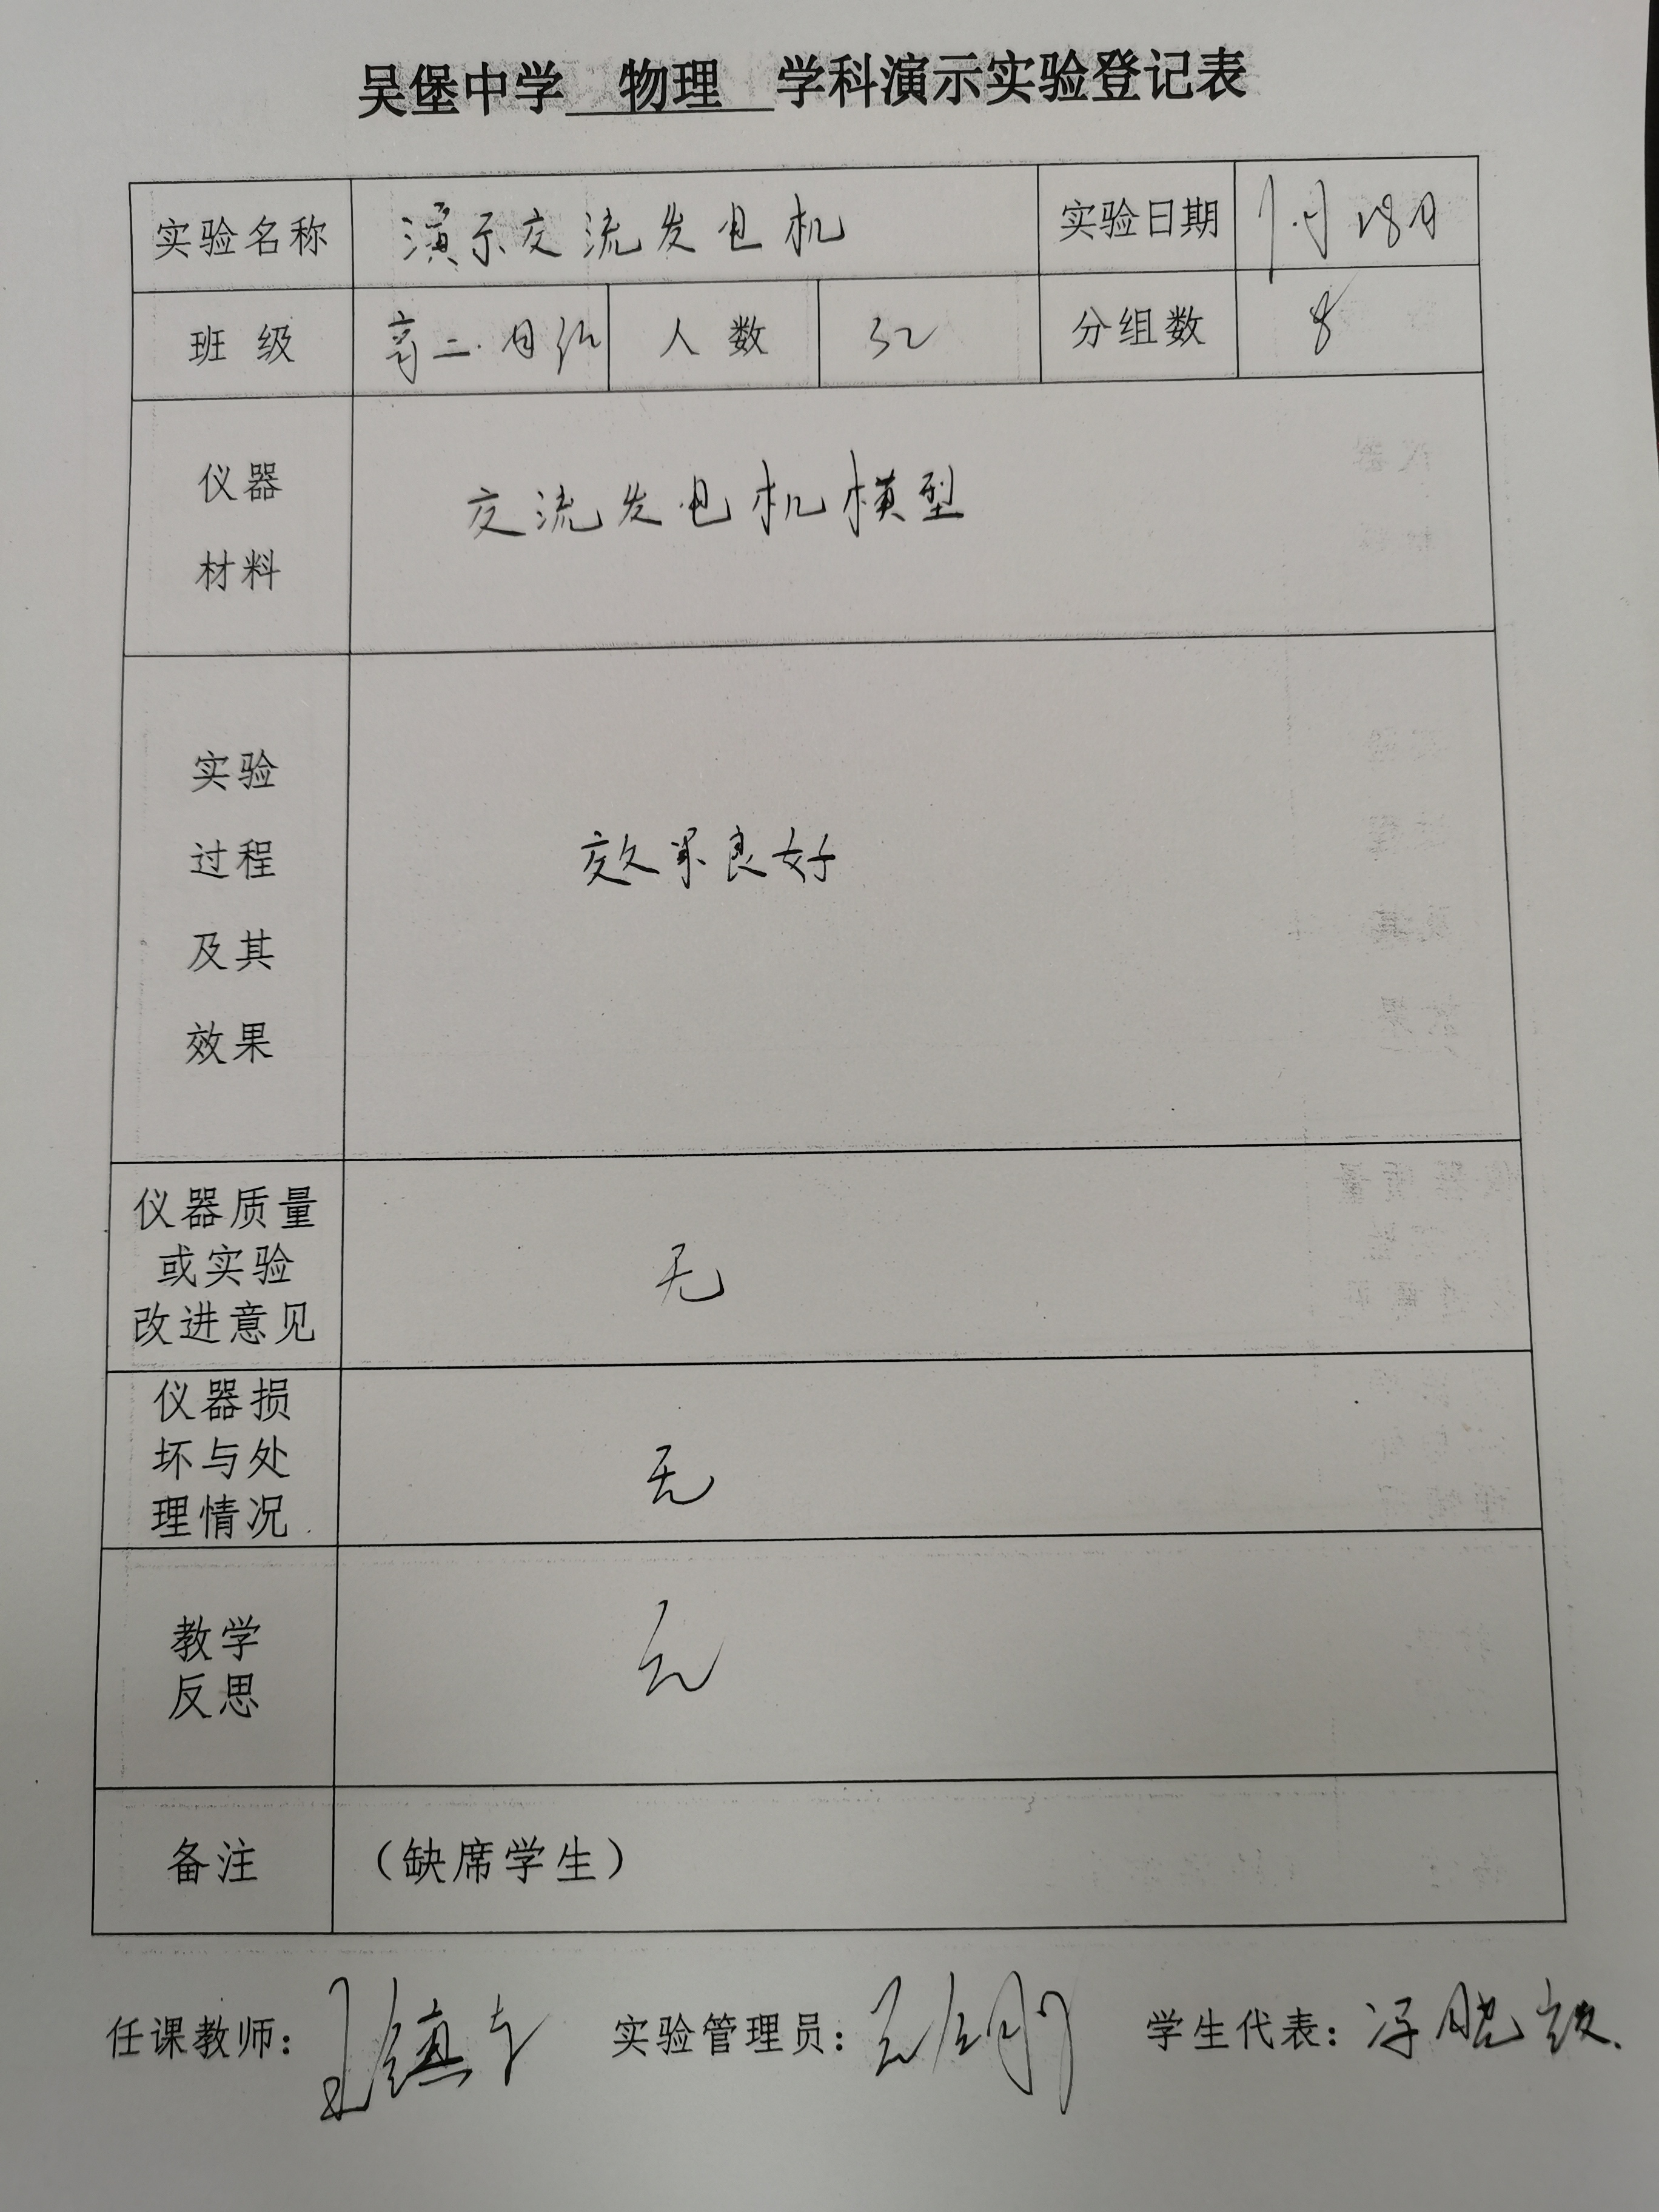 吴堡中学 物理 学科演示实验登记表
实验名称 演示交流发电机 实验日期 1月18日
班级 高二. 人数 32 分组数 8
仪器
材料
交流发电机模型
实验
过程
及其
效果
效果良好
仪器质量
或实验
改进意见
无
仪器损
坏与处
理情况
无
教学
反思
无
备注 （缺席学生）
任课教师： 实验管理员： 学生代表：冯